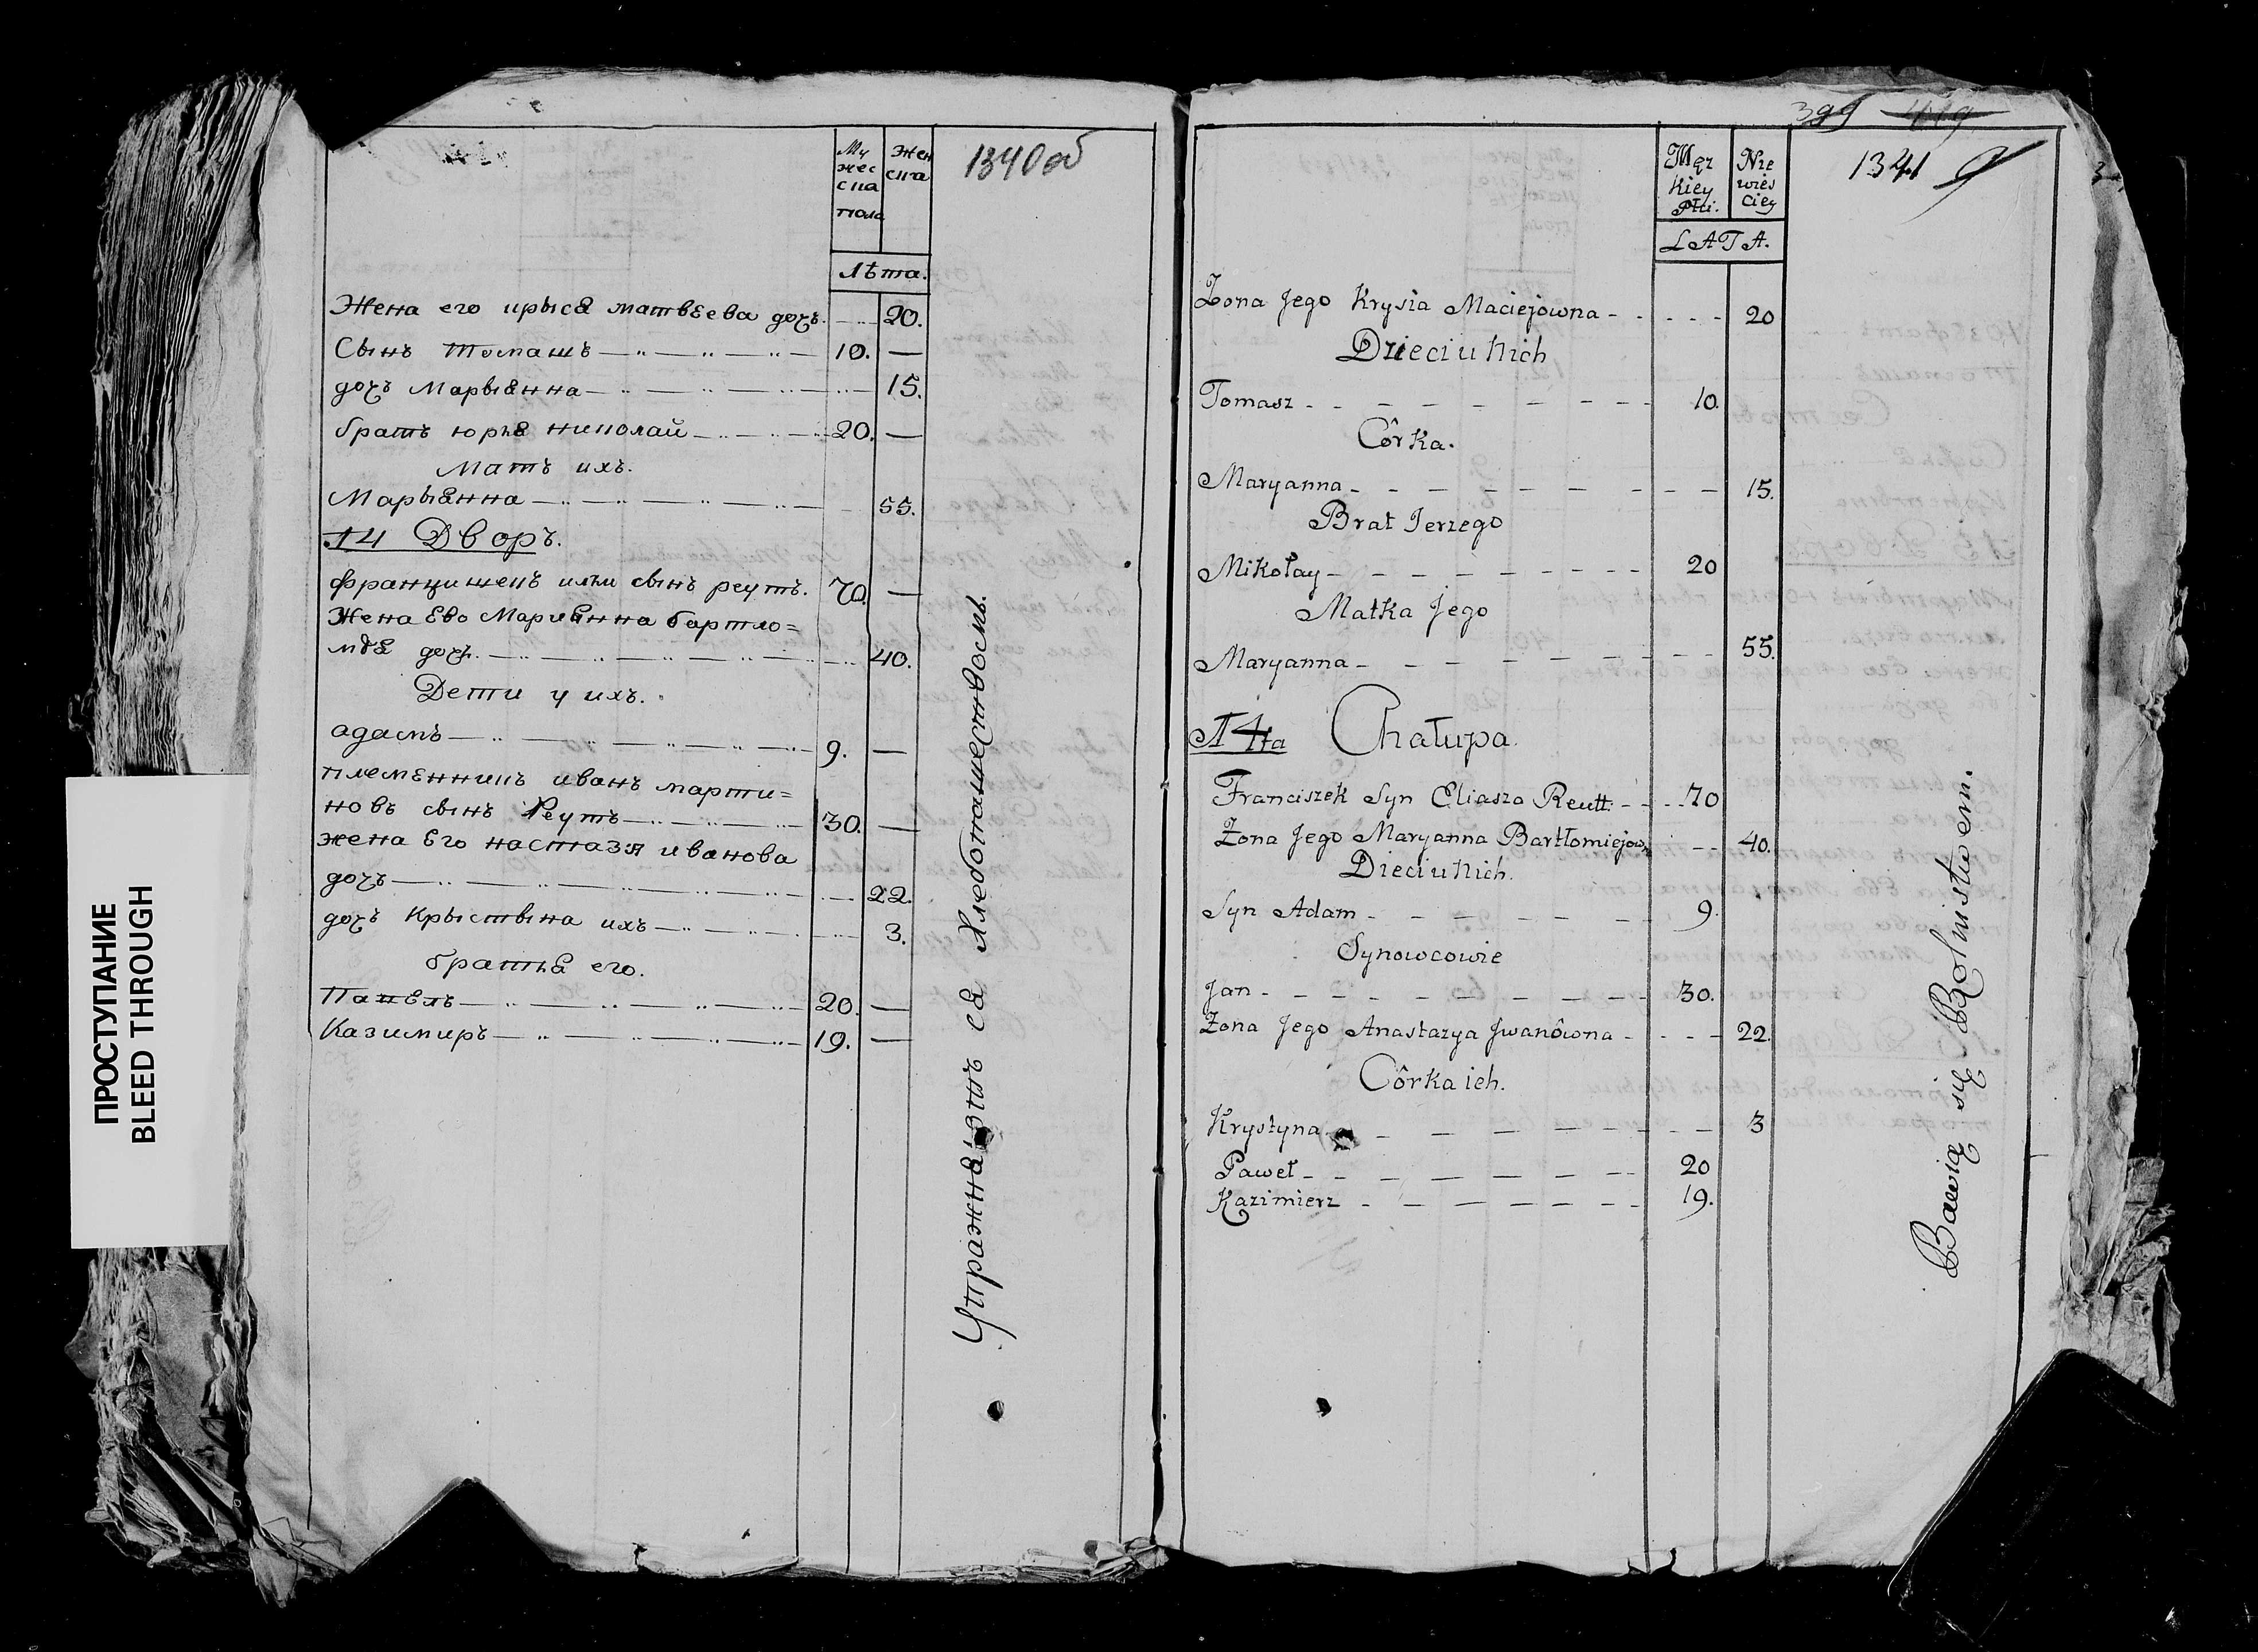 1340 об
Му
жес
ска
пола
Жен
ска
Лѣта.
Жена его крыся матвѣева дочь. 20.
Сынъ Томашъ 10. —
дочь Марыянна 15.
братъ юрья николай 20. —
Мать ихъ.
Марыянна 55.
14 Дворъ.
францишекъ ильи сынъ реутъ. 70. —
Жена Ево Мариянна бартло=
мѣя дочь. 40.
Дети у ихъ.
адамъ 9. —
племенникъ иванъ марти=
новъ сынъ Реутъ 30. —
жена Его настазя иванова
дочь 22.
дочь Крыстына ихъ 3.
братья его.
Павелъ 20. —
Казимиръ 19. —
Упражнязтъ ся Хлебопашествомъ.
399
1341
Męz
kiey
Płci.
Nie
wies
ciey
LATA.
Zona Jego Krysia Maciejowna 20
Dzieci u Nich
Tomasz 10.
Côrka.
Maryanna 15.
Brat Jerzego
Mikołay 20
Matka Jego
Maryanna 55.
14ta Chałupa.
Franciszek Syn Eliasza Reutt 70
Zona Jego Maryanna Bartłomiejown 40.
Dieci u Nich.
Syn Adam 9.
Synowcowie
Jan 30.
Zona Jego Anastazya Jwanôwna 22.
Côrka ich.
Krystyna 3
Paweł 20
Kazimierz 19.
Bawią się Rolnistwem.
ПРОСТУПАНИЕ
BLEED THROUGH